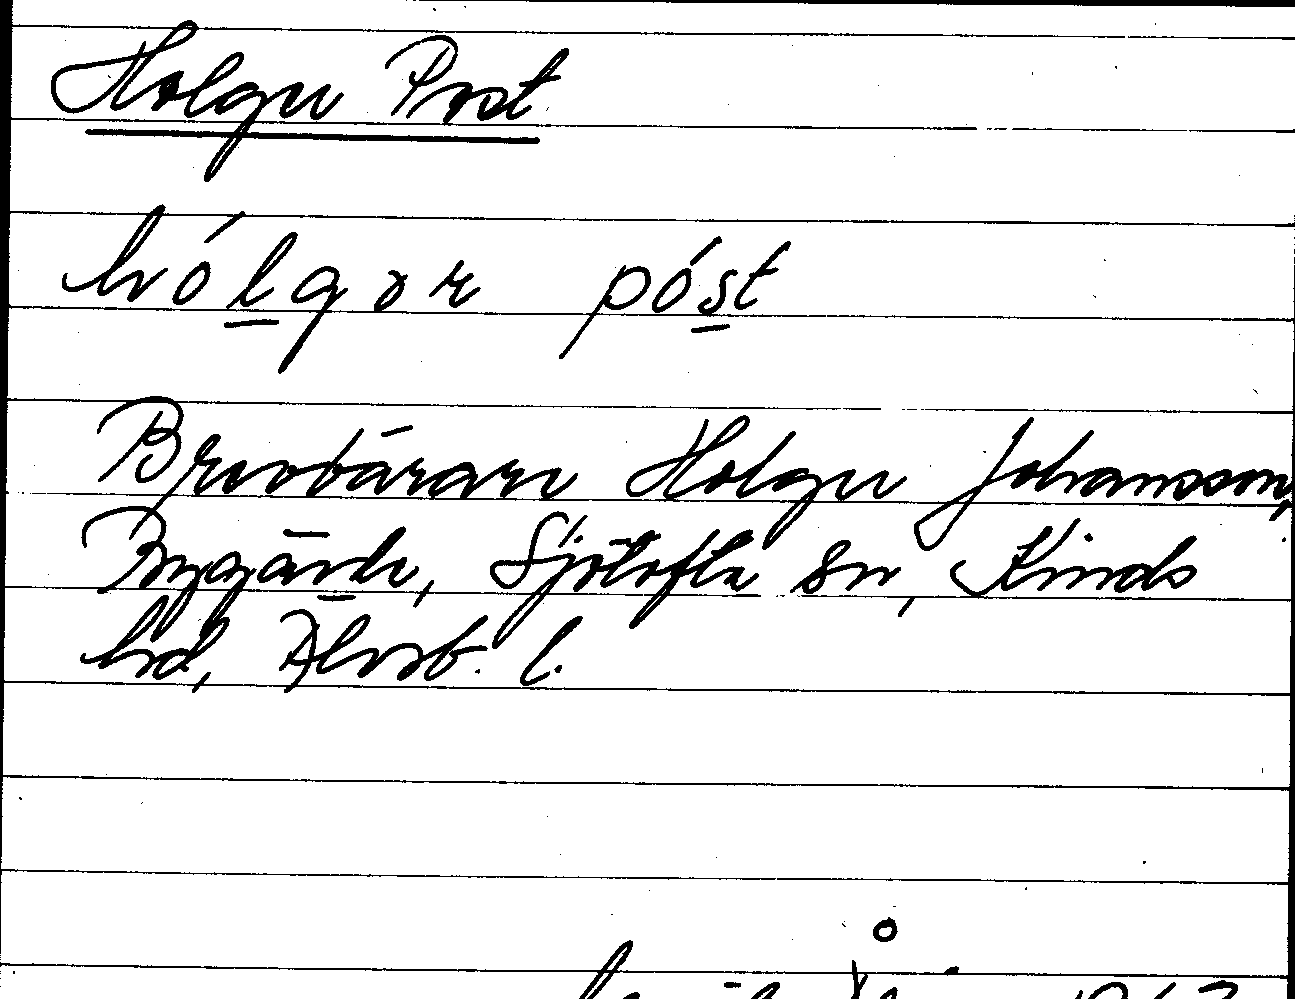 Holger Post
hólgər póst
Brevbäraren Holger Johansson,
Byggärde, Sjötofta sn, Kinds
hd, Älvsb. l.